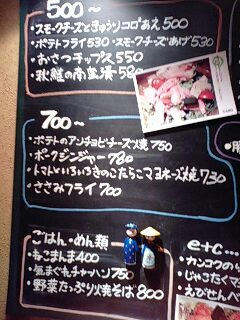 500〜
・スモークチーズときゅうりコロあえ500
・ポテトフライ530・スモークチーズあげ530
・おさつチップス550
・秋鮭の南蛮漬580
700〜
・ポテトのアンチョビチーズ焼750
・ポークジンジャー780
・トマトといろいろきのこたらこマヨネーズ焼730
・ささみフライ700
ごはん・めん類
・ねこまんま400
・気まぐれチャーハン750
・野菜たっぷり焼そば800
e+c...
・カンコクのり
・じゃこたくマ
・えびせんべ